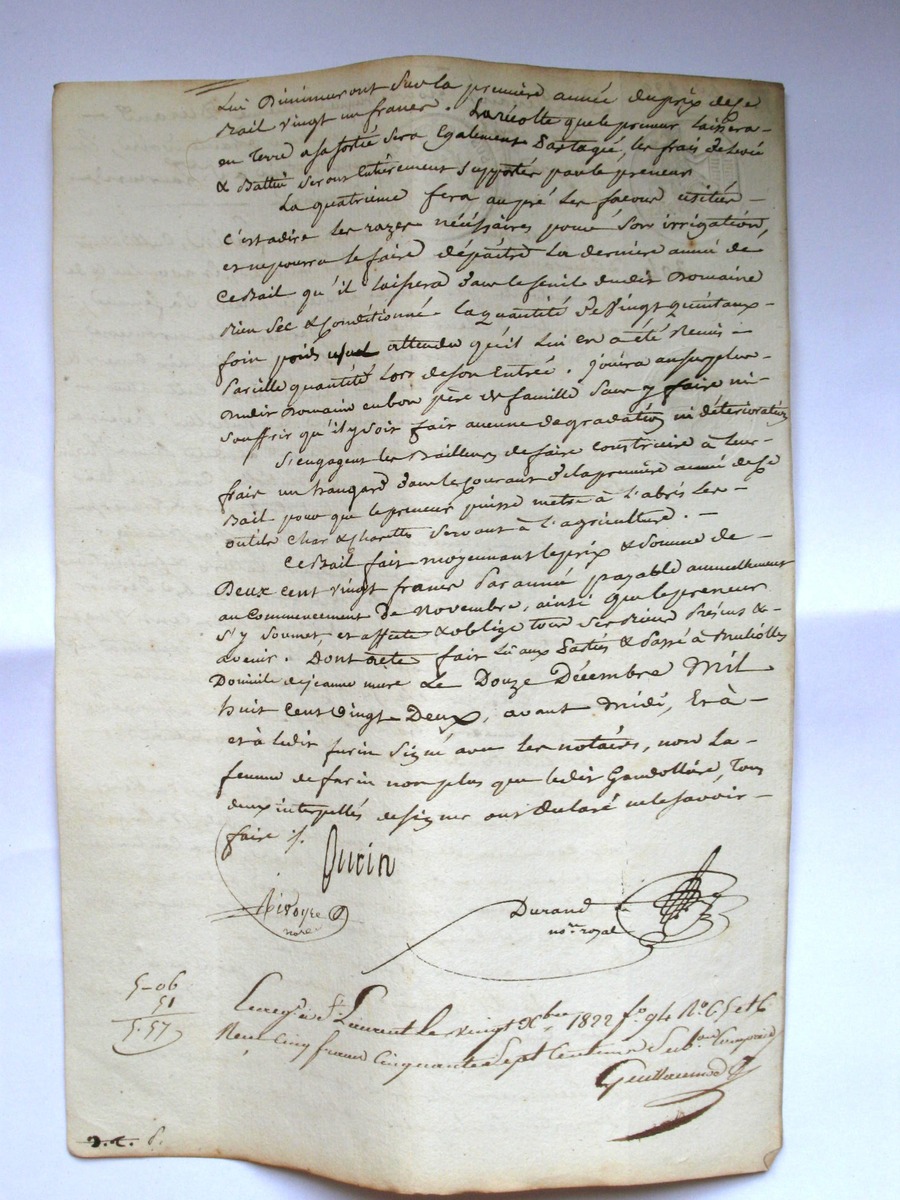 Lui Diminueront Sur la première année du prix de ce
Bail vingt un francs. La récolte que le preneur laissera
en Terre a sa sortié sera Egalement Partagié, les frais de levée
& Battue seront Entièrement Supportés par le preneur
La quatrième fera au pré les facons usitées
c'est adire les razes nécéssaires pour Son irrigation,
et ne pourra le faire dépaître La dernière année de
ce Bail qu'il laissera Dans le fenil dudit Domaine
Bien Sec & Conditionné la quantité De Vingt quintaux
foin poids usuel attendu qu'il Lui en a été Remis
Pareille quantité Lors de son Entrée. jouira au surplus
Dudit Domaine en bon père de famille Sans y faire ni
souffrir qu'il y soit fait aucune dégradation ni détérioration
S'engagent les Bailleurs de faire construire à leurs
frais un hangard Dans le courant de la première année de ce
Bail pour que le preneur puisse metre à L'abris Les
outils Char & Charette Servant à L'agriculture.
Ce Bail fait moyennant le prix & Somme de
Deux cent vingt francs Par année payable annuellement
au Commencement De Novembre, ainsi que le preneur
S'y Soumet et affecte & oblige tous Ses Biens Présens &
avenir. Dont acte fait Lû aux Parties & Passé à
Domicile de jeanne Le Douze Décembre Mil
huit Cent Vingt Deux, avant Midi, Et à
et à ledit furin Signé avec Les notaires, non La
femme de farin non plus que ledit Gandollière, Tous
deux interpellés de signer ont Déclaré ne le savoir
faire ./.
Durin
nore
Durand
nore royal
5-06
51
5.57
Enregé à St Laurent Le vingt Xbre 1822 fo 94 Ro C. 5 et 6
Reçu Cinq francs Cinquante Sept Centimes
Guillaumod
D. C. 6.